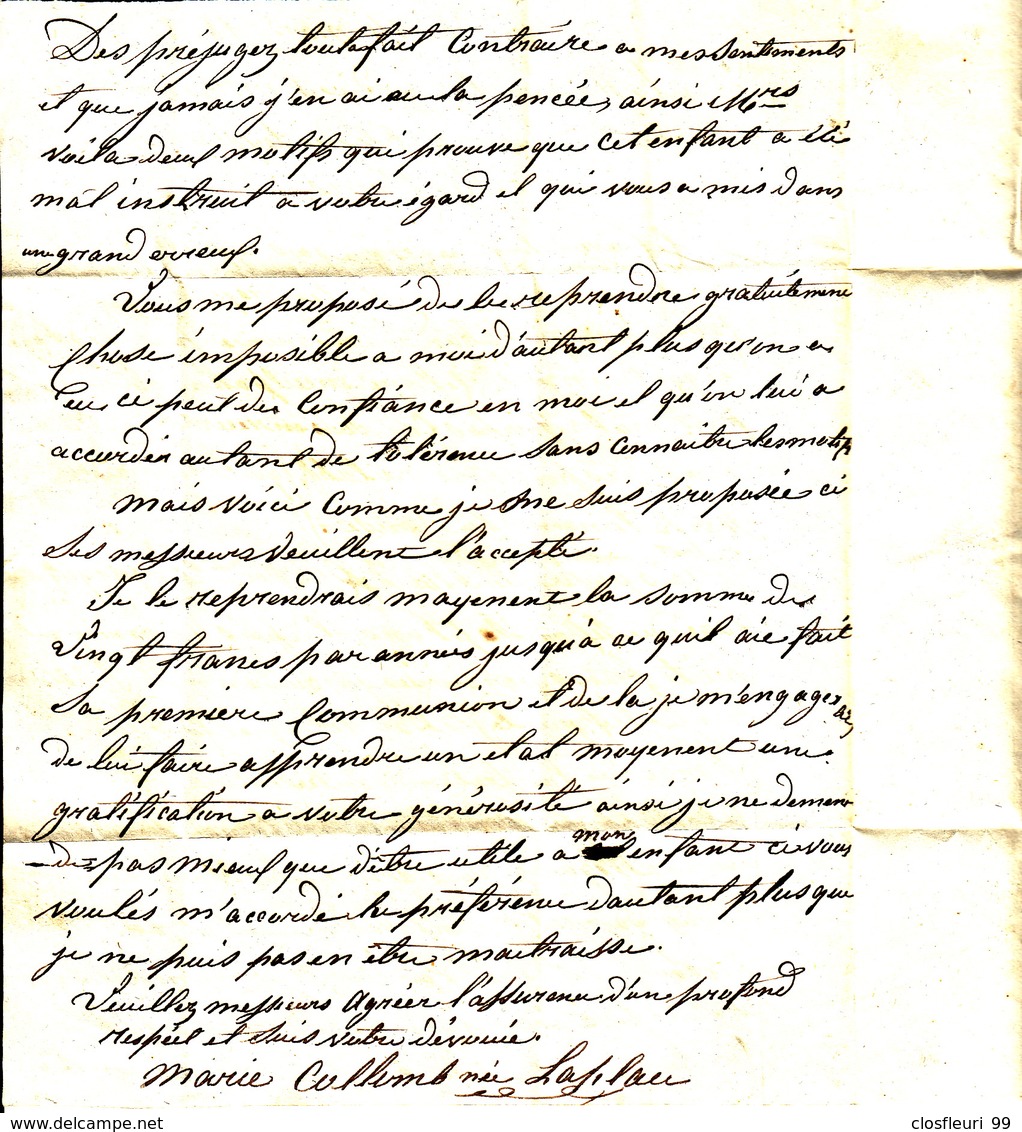 Des préjugez toutafait Contraire a mes sentiments
et que jamais j'en ai au la pencée, ainsi Mrs
voila deux motifs qui prouve que cet enfant a été
mal instruit a votre égard et qui vous a mis dans
une grand erreux.
Vous me proposé de le reprendre gratuitement
Chose imposible a moi d'autant plus qu'on a
eu ci peut de Confiance en moi et qu'on lui a
accorder autant de tolérence sans connaitre les motifs
mais voici Comme je me suis proposée ci
Ses messieurs veuillent l'accepté.
Je le reprendrais moyenent la somme de
Vingt francs par annés jusqu'a ce quil aie fait
Sa premiere Communion et de la je m'engagerai
de lui faire apprendre un etat moyenent une
gratification a votre générosité ainsi je ne deman
-de pas mieux que d'être utile a mon enfant ci vous
voulés m'accordé la préférence dautant plus que
je ne puis pas en être maitraisse.
Veuillez messieurs Agréer l'assurence d'un profond
respect et suis votre dévouée.
Marie Collomb née Laplace
closfleuri 99